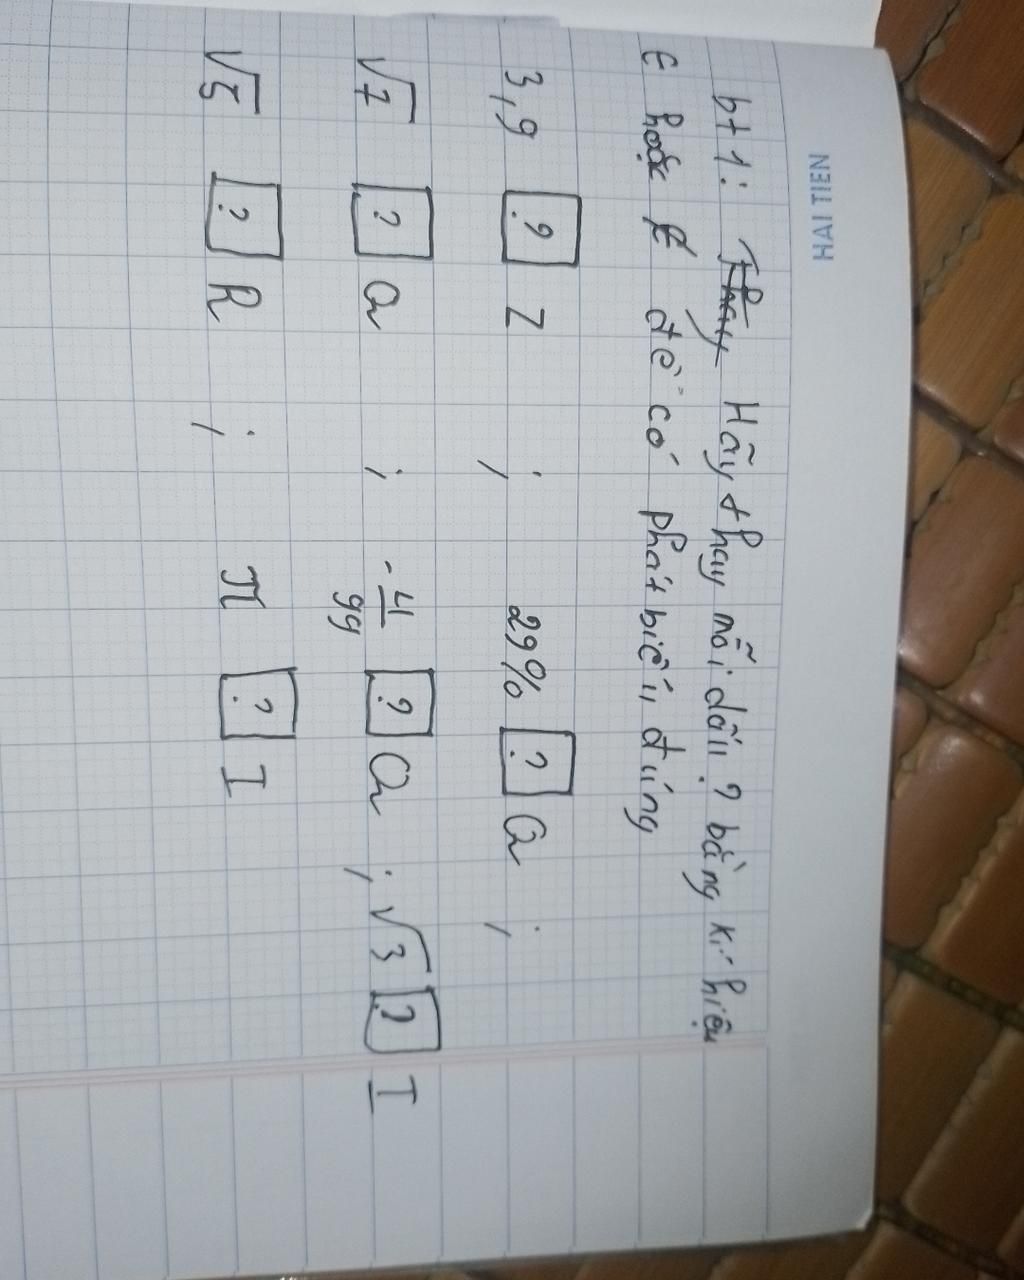 HẢI TIẾN
bt 1: Thay Hãy thay mỗi dấu ? bằng kí hiệu
∈ hoặc ∉ để có phát biểu đúng
3,9 ? Z ; 29% ? Q ;
√7 ? Q ; -4/99 ? Q ; √3 ? I
√5 ? R ; π ? I